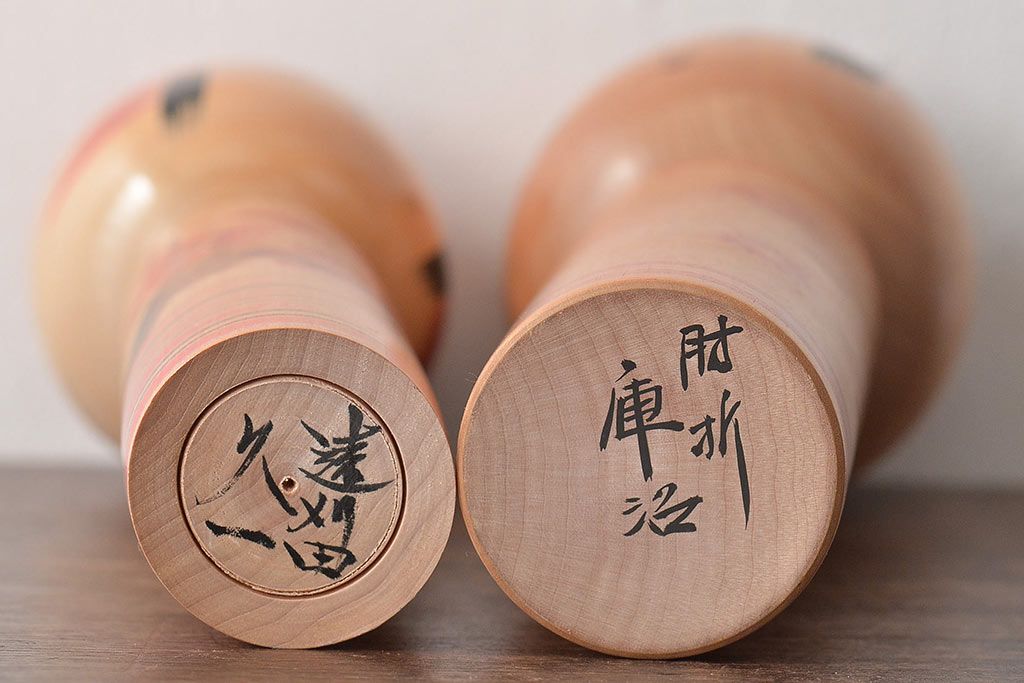 遠刈田
久一
肘折
庫治